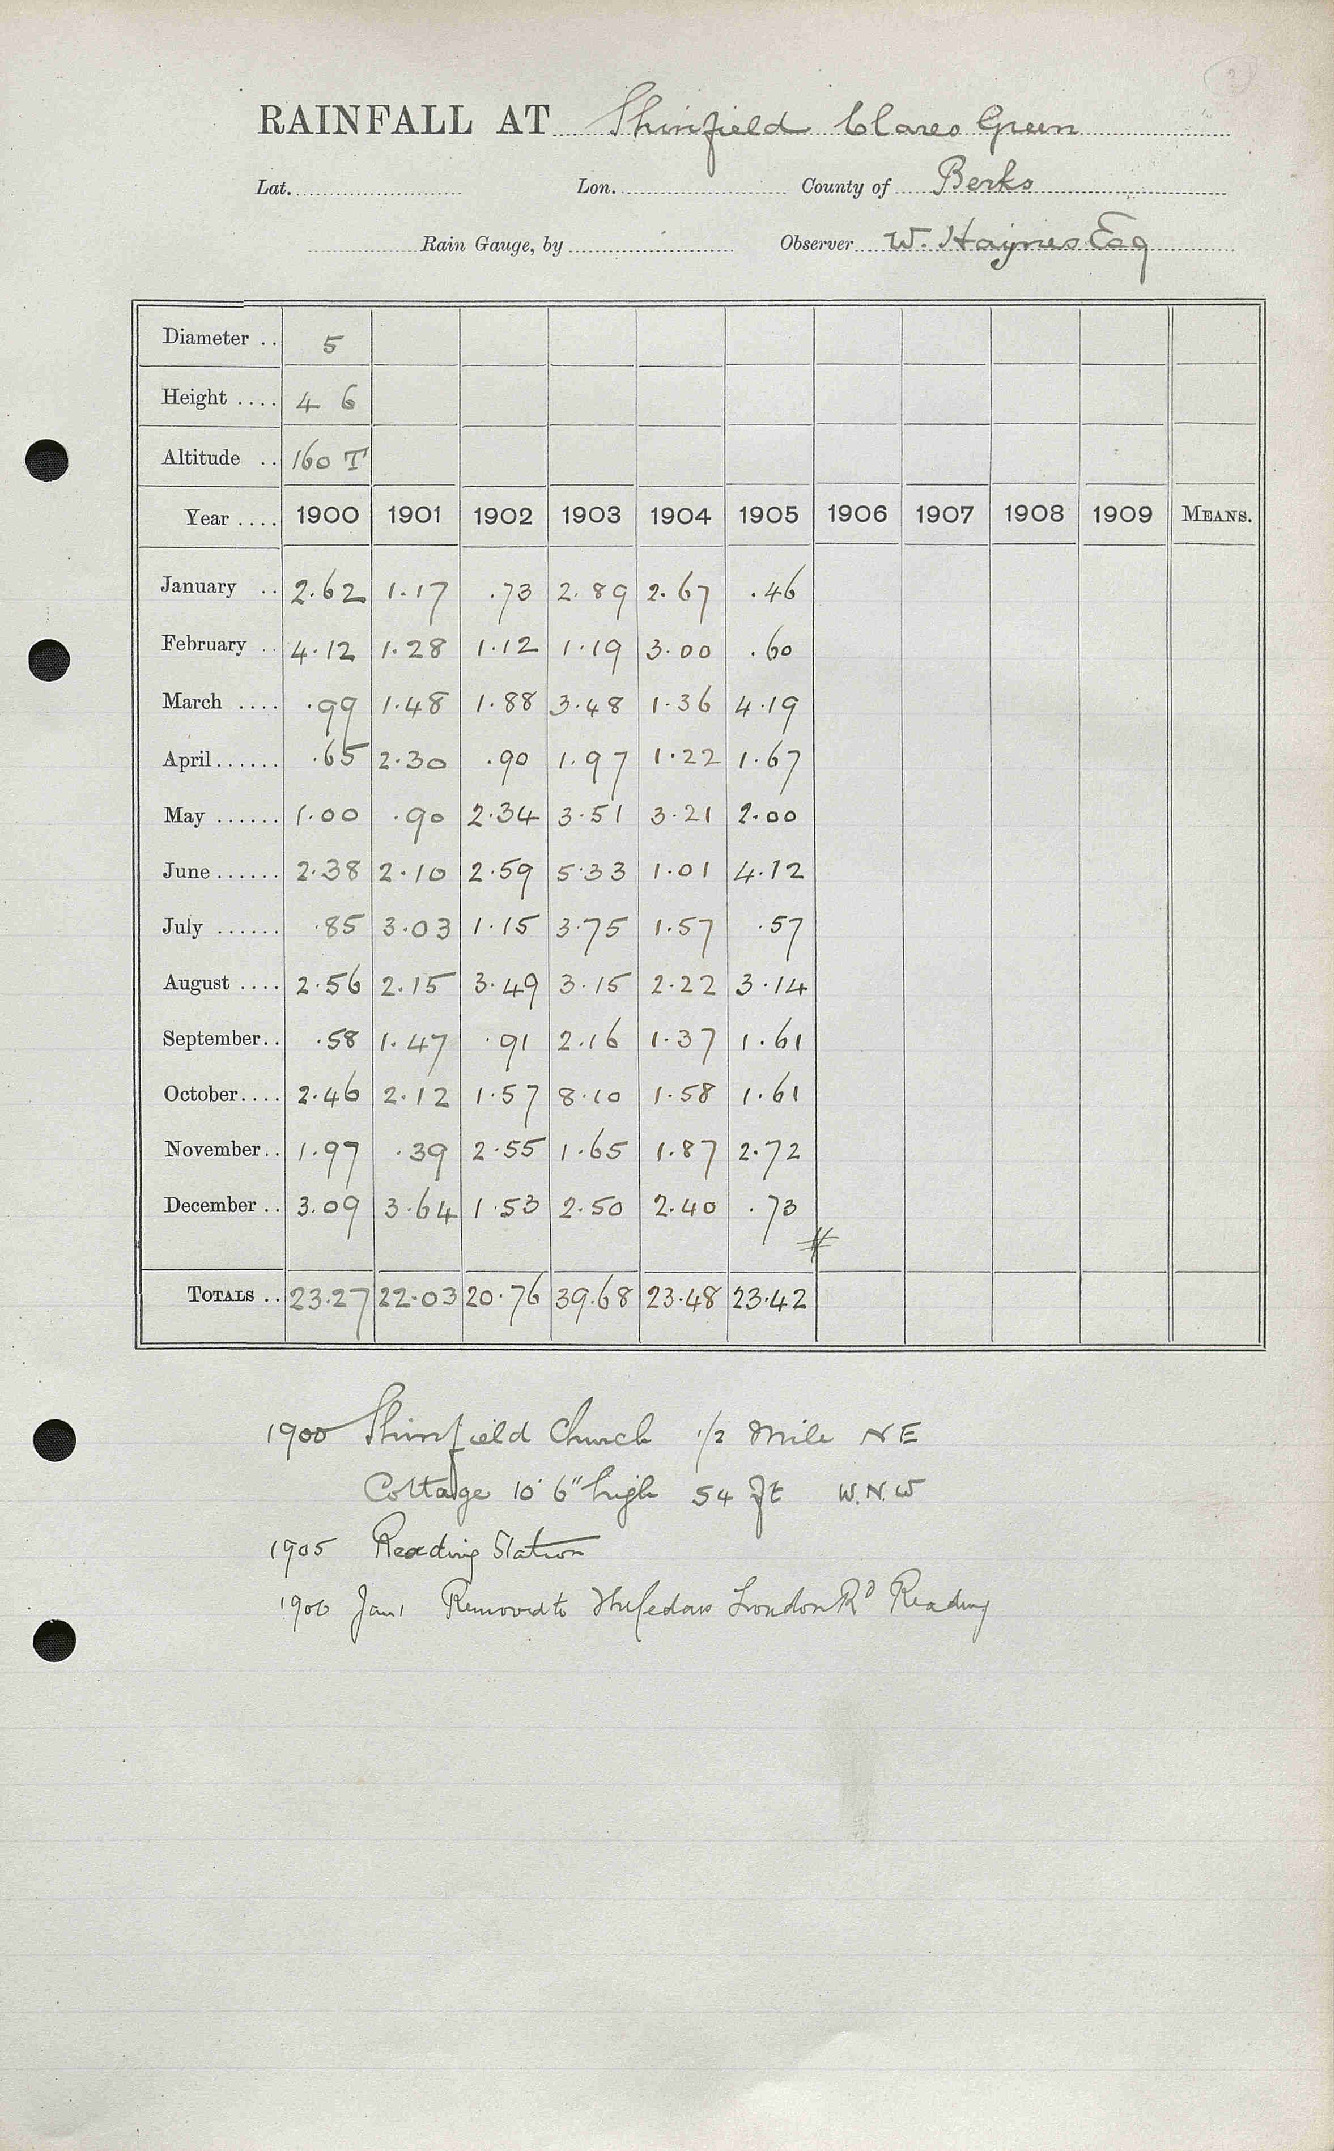 RAINFALL AT Shinfield Clares Green
Lat. Lon. County of Berks
Rain Gauge, by Observer W. Haynes Esq
Diameter .. 5
Height .... 4 6
Altitude .. 160 T
Year .... 1900 1901 1902 1903 1904 1905 1906 1907 1908 1909 MEANS.
January .. 2.62 1.17 .73 2.89 2.67 .46
February .. 4.12 1.28 1.12 1.19 3.00 .60
March .... .99 1.48 1.88 3.48 1.36 4.19
April ...... .65 2.30 .90 1.97 1.22 1.67
May ...... 1.00 .90 2.34 3.51 3.21 2.00
June ...... 2.38 2.10 2.59 5.33 1.01 4.12
July ...... .85 3.03 1.15 3.75 1.57 .57
August .... 2.56 2.15 3.49 3.15 2.22 3.14
September .. .58 1.47 .91 2.16 1.37 1.61
October .... 2.46 2.12 1.57 8.10 1.58 1.61
November .. 1.97 .39 2.55 1.65 1.87 2.72
December .. 3.09 3.64 1.53 2.50 2.40 .73
TOTALS .. 23.27 22.03 20.76 39.68 23.48 23.42
1900 Shinfield Church 1/2 Mile NE
Cottage 10' 6" high 54 ft W.N.W
1905 Reading Station
1906 Jan 1 Removed to London Rd Reading